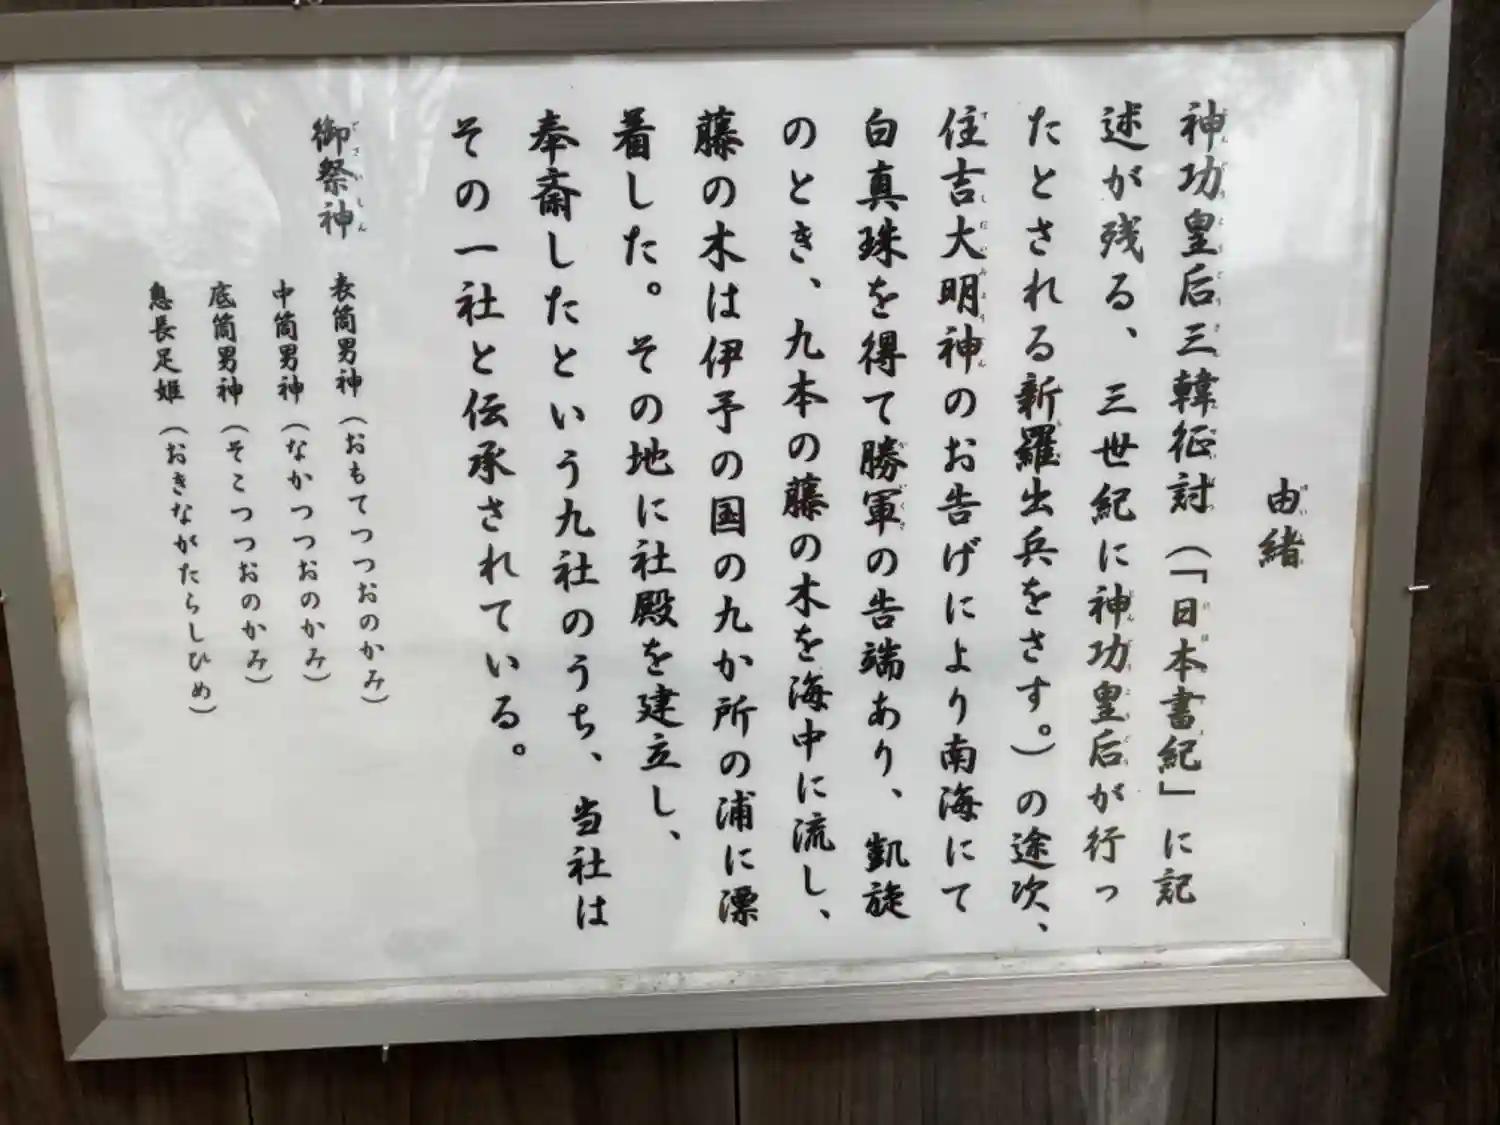 由緒
神功皇后三韓征討（「日本書紀」に記
述が残る、三世紀に神功皇后が行っ
たとされる新羅出兵をさす。）の途次、
住吉大明神のお告げにより南海にて
白真珠を得て勝軍の告端あり、凱旋
のとき、九本の藤の木を海中に流し、
藤の木は伊予の国の九か所の浦に漂
着した。その地に社殿を建立し、
奉斎したという九社のうち、当社は
その一社と伝承されている。
御祭神
表筒男神（おもてつつおのかみ）
中筒男神（なかつつおのかみ）
底筒男神（そこつつおのかみ）
息長足姫（おきながたらしひめ）